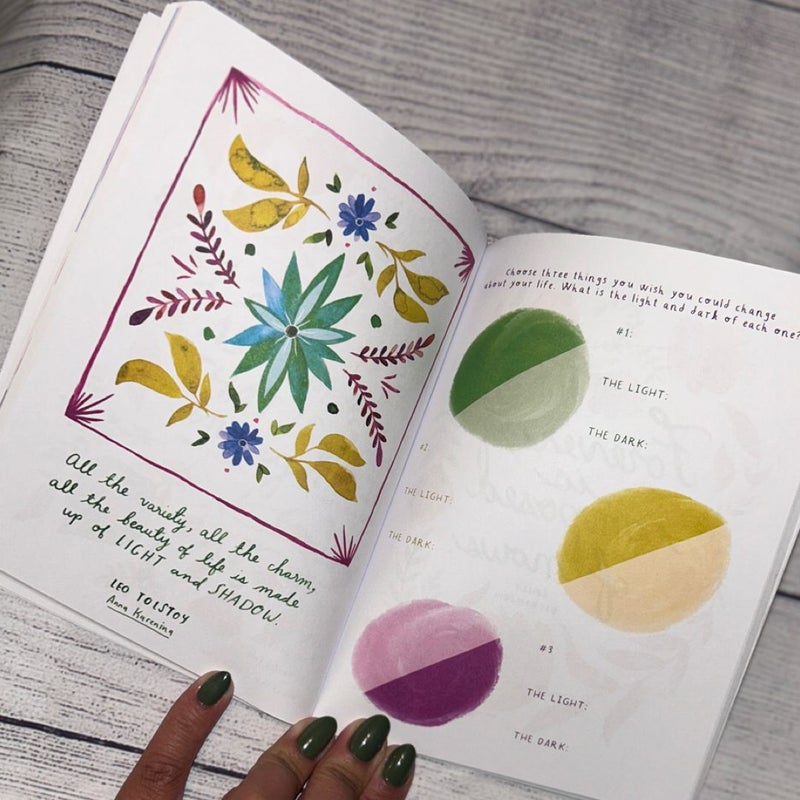 All the variety, all the charm,
all the beauty of life is made
up of LIGHT and SHADOW.
LEO TOLSTOY
Anna Karenina
Choose three things you wish you could change
about your life. What is the light and dark of each one?
#1:
THE LIGHT:
THE DARK:
#2
THE LIGHT:
THE DARK:
#3
THE LIGHT:
THE DARK: